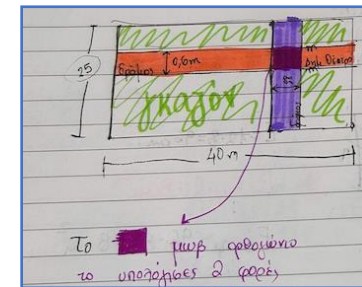 25
δρόμος
0,6m
γκαζόν
40 m
Το μωβ ορθογώνιο
το υπολόγισες 2 φορές